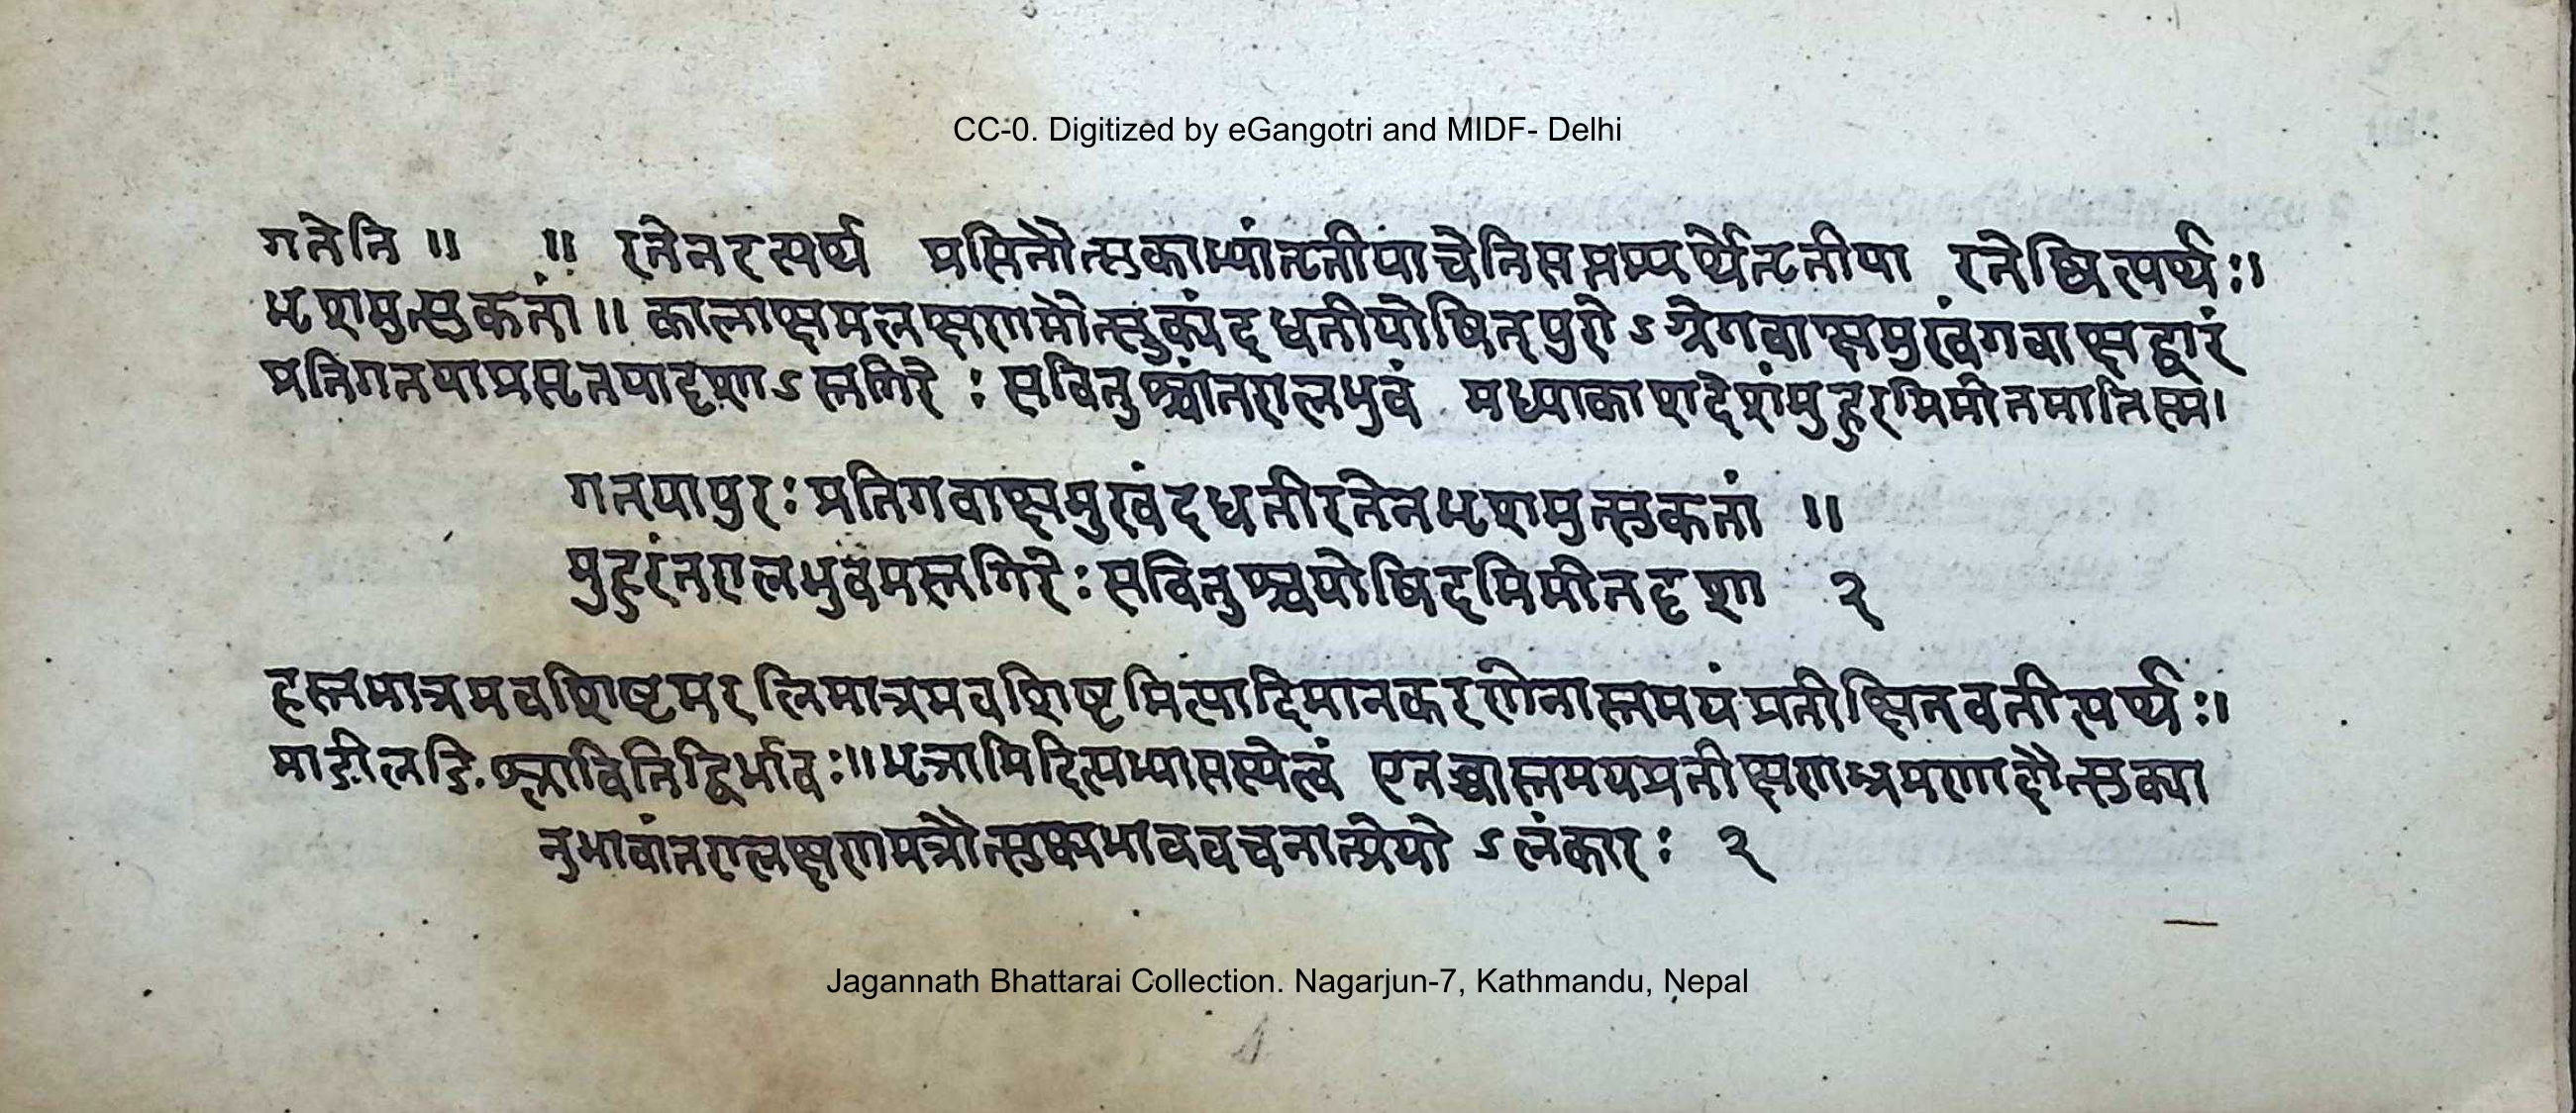 CC-0. Digitized by eGangotri and MIDF- Delhi
गतेति ॥ ॥ रतेनरत्यर्थ प्रसितोत्सुकाभ्यांतृतीयाचेतिसप्तम्यर्थेतृतीया रतेष्वित्यर्थः॥
भृशमुत्सुकतां॥ कालाक्षमलक्षणमौत्सुक्यंदधतीयोषित्पुरोऽग्रेगवाक्षमुखंगवाक्षद्वारं
प्रतिगतयाप्रसृतयादृशाऽस्तगिरेः सवितुश्चांतरालभुवं मध्याकाशदेशंमुहुरमिमीतमातिस्म।
गतयापुरःप्रतिगवाक्षमुखंदधतीरतेनभृशमुत्सुकतां ॥
मुहुरंतरालभुवमस्तगिरेःसवितुश्चयोषिदमिमीतदृशा २
हस्तमात्रमवशिष्टमरत्निमात्रमवशिष्टमित्यादिमानकरणेनास्तमयंप्रतीक्षितवतीत्यर्थः॥
माङोलङि श्लावितिद्विर्भावः॥भृञामिदित्यभ्यासस्येत्वं एतच्चास्तमयप्रतीक्षणश्रमणादौत्सुक्या
नुभावांतरालक्षणमत्रौत्सुक्यभाववचनात्प्रेयोऽलंकारः २
Jagannath Bhattarai Collection. Nagarjun-7, Kathmandu, Nepal